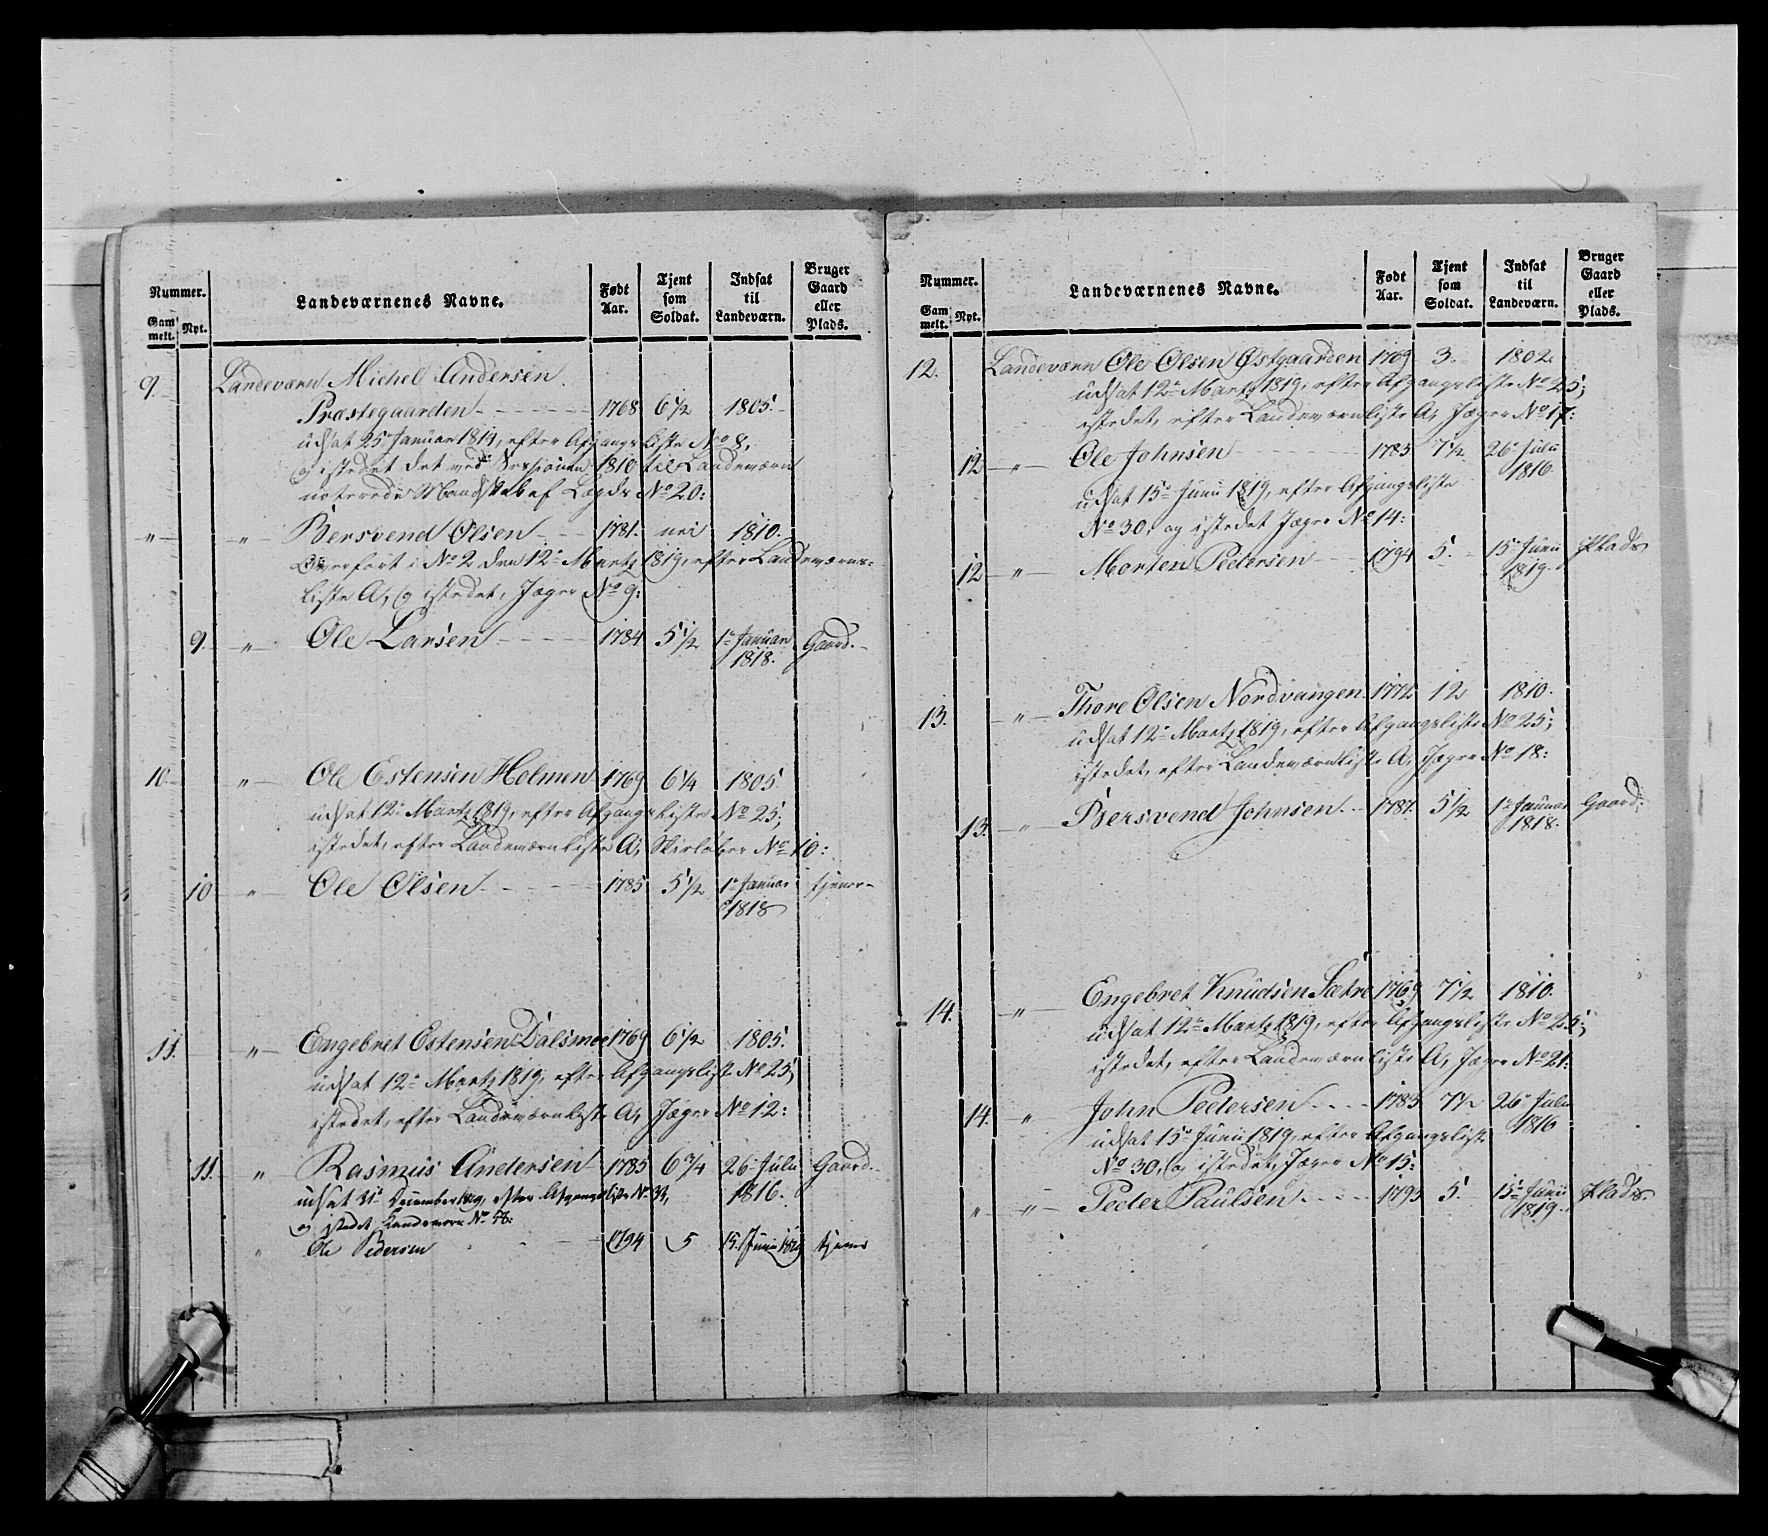 Nummer.
Gam
melt.
Nyt.
Landeværnenes Navne.
Født
Aar.
Tjent
som
Soldat.
Indsat
til
Landeværn.
Bruger
Gaard
eller
Plads.
9. Landeværn Michel Andersen
Præstegaarden 1768 6½ 1805.
udsat 25 Januar 1814, efter Afgangsliste No 8,
og istedet det ved Sessionen 1810 til Landeværn
noterede Mandskab af Lægds No 20:
" " Bersvend Olsen 1781. nei 1810.
Overført i No 2 den 12te Martz 1819, efter Landeværns-
liste A, og istedet, Jæger No 9:
9. " Ole Larsen 1784 5½ 1te Januar Gaard.
1818.
10 " Ole Estensen Holmen 1769 6¼ 1805
udsat 12te Martz 1819, efter Afgangsliste No 25;
istedet, efter Landeværnliste A, Skieløber No 10:
10 " Ole Olsen 1785 5½ 1te Januar tjener
1818
11. " Engebret Estensen Dalsmoe 1769 6½ 1805.
udsat 12te Martz 1819, efter Afgangsliste No 25;
istedet, efter Landeværnliste A, Jæger No 12:
11. " Rasmus Andersen 1785 6¾ 26 Julii Gaard.
udsat 31te December 1819, efter Afgangsliste No 33, 1816.
og istedet Landeværn No
" Ole Pedersen 1794 5 15. Junii tjener
Nummer.
Gam
melt.
Nyt.
Landeværnenes Navne.
Født
Aar.
Tjent
som
Soldat.
Indsat
til
Landeværn.
Bruger
Gaard
eller
Plads.
12. Landeværn Ole Olsen Østgaarden 1769 3. 1802.
udsat 12te Martz 1819, efter Afgangsliste No 25;
istedet, efter Landeværnliste A, Jæger No 17:
12 " Ole Johnsen 1785 7½ 26 Julii
1816
udsat 15de Junii 1819, efter Afgangsliste
No 30, og istedet Jæger No 14:
12 " Morten Pedersen 1794 5. 15de Junii Plads
1819.
13. " Thore Olsen Nordvangen 1772 12 1810.
udsat 12te Martz 1819, efter Afgangsliste No 25;
istedet, efter Landeværnliste A, Jæger No 18:
13. " Bersvend Johnsen 1787. 5½ 1te Januar Gaard.
1818.
14. " Engebret Knudsen Sætre 1769 7½ 1810.
udsat 12te Martz 1819, efter Afgangsliste No 25;
istedet, efter Landeværnliste A, Jæger No 21:
14. " John Pedersen 1785 7½ 26 Julii
udsat 15de Junii 1819, efter Afgangsliste 1816
No 30, og istedet, Jæger No 15:
" " Peder Paulsen 1793 5. 15de Junii Plads
1819.